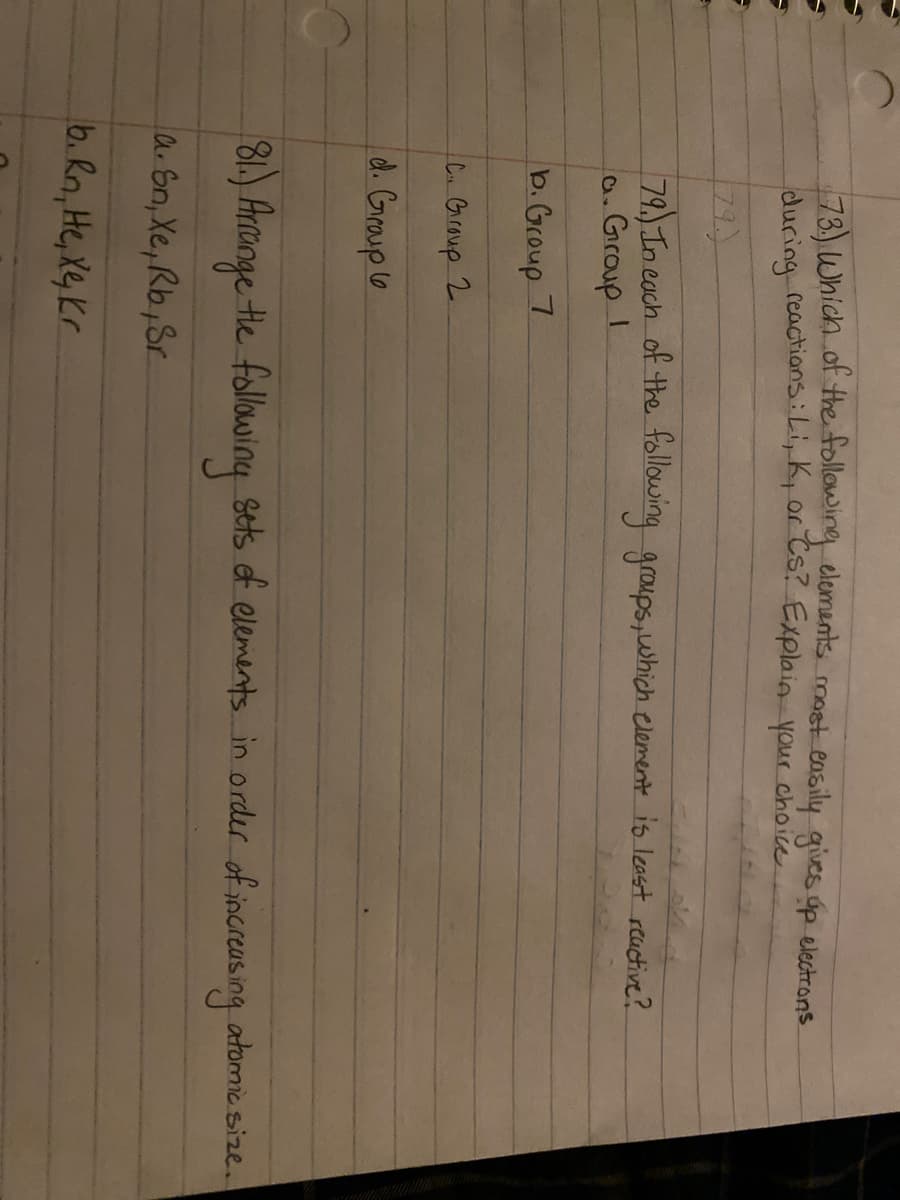 73.) Which of the following elements most easily gives up electrons
during reactions: Li, K, or Cs? Explain your choice.
79.)
79.) In each of the following groups, which element is least reactive?
a. Group 1
b. Group 7
c. Group 2
d. Group 6
81.) Arrange the following sets of elements in order of increasing atomic size.
a. Sn, Xe, Rb, Sr
b. Rn, He, Xe, Kr